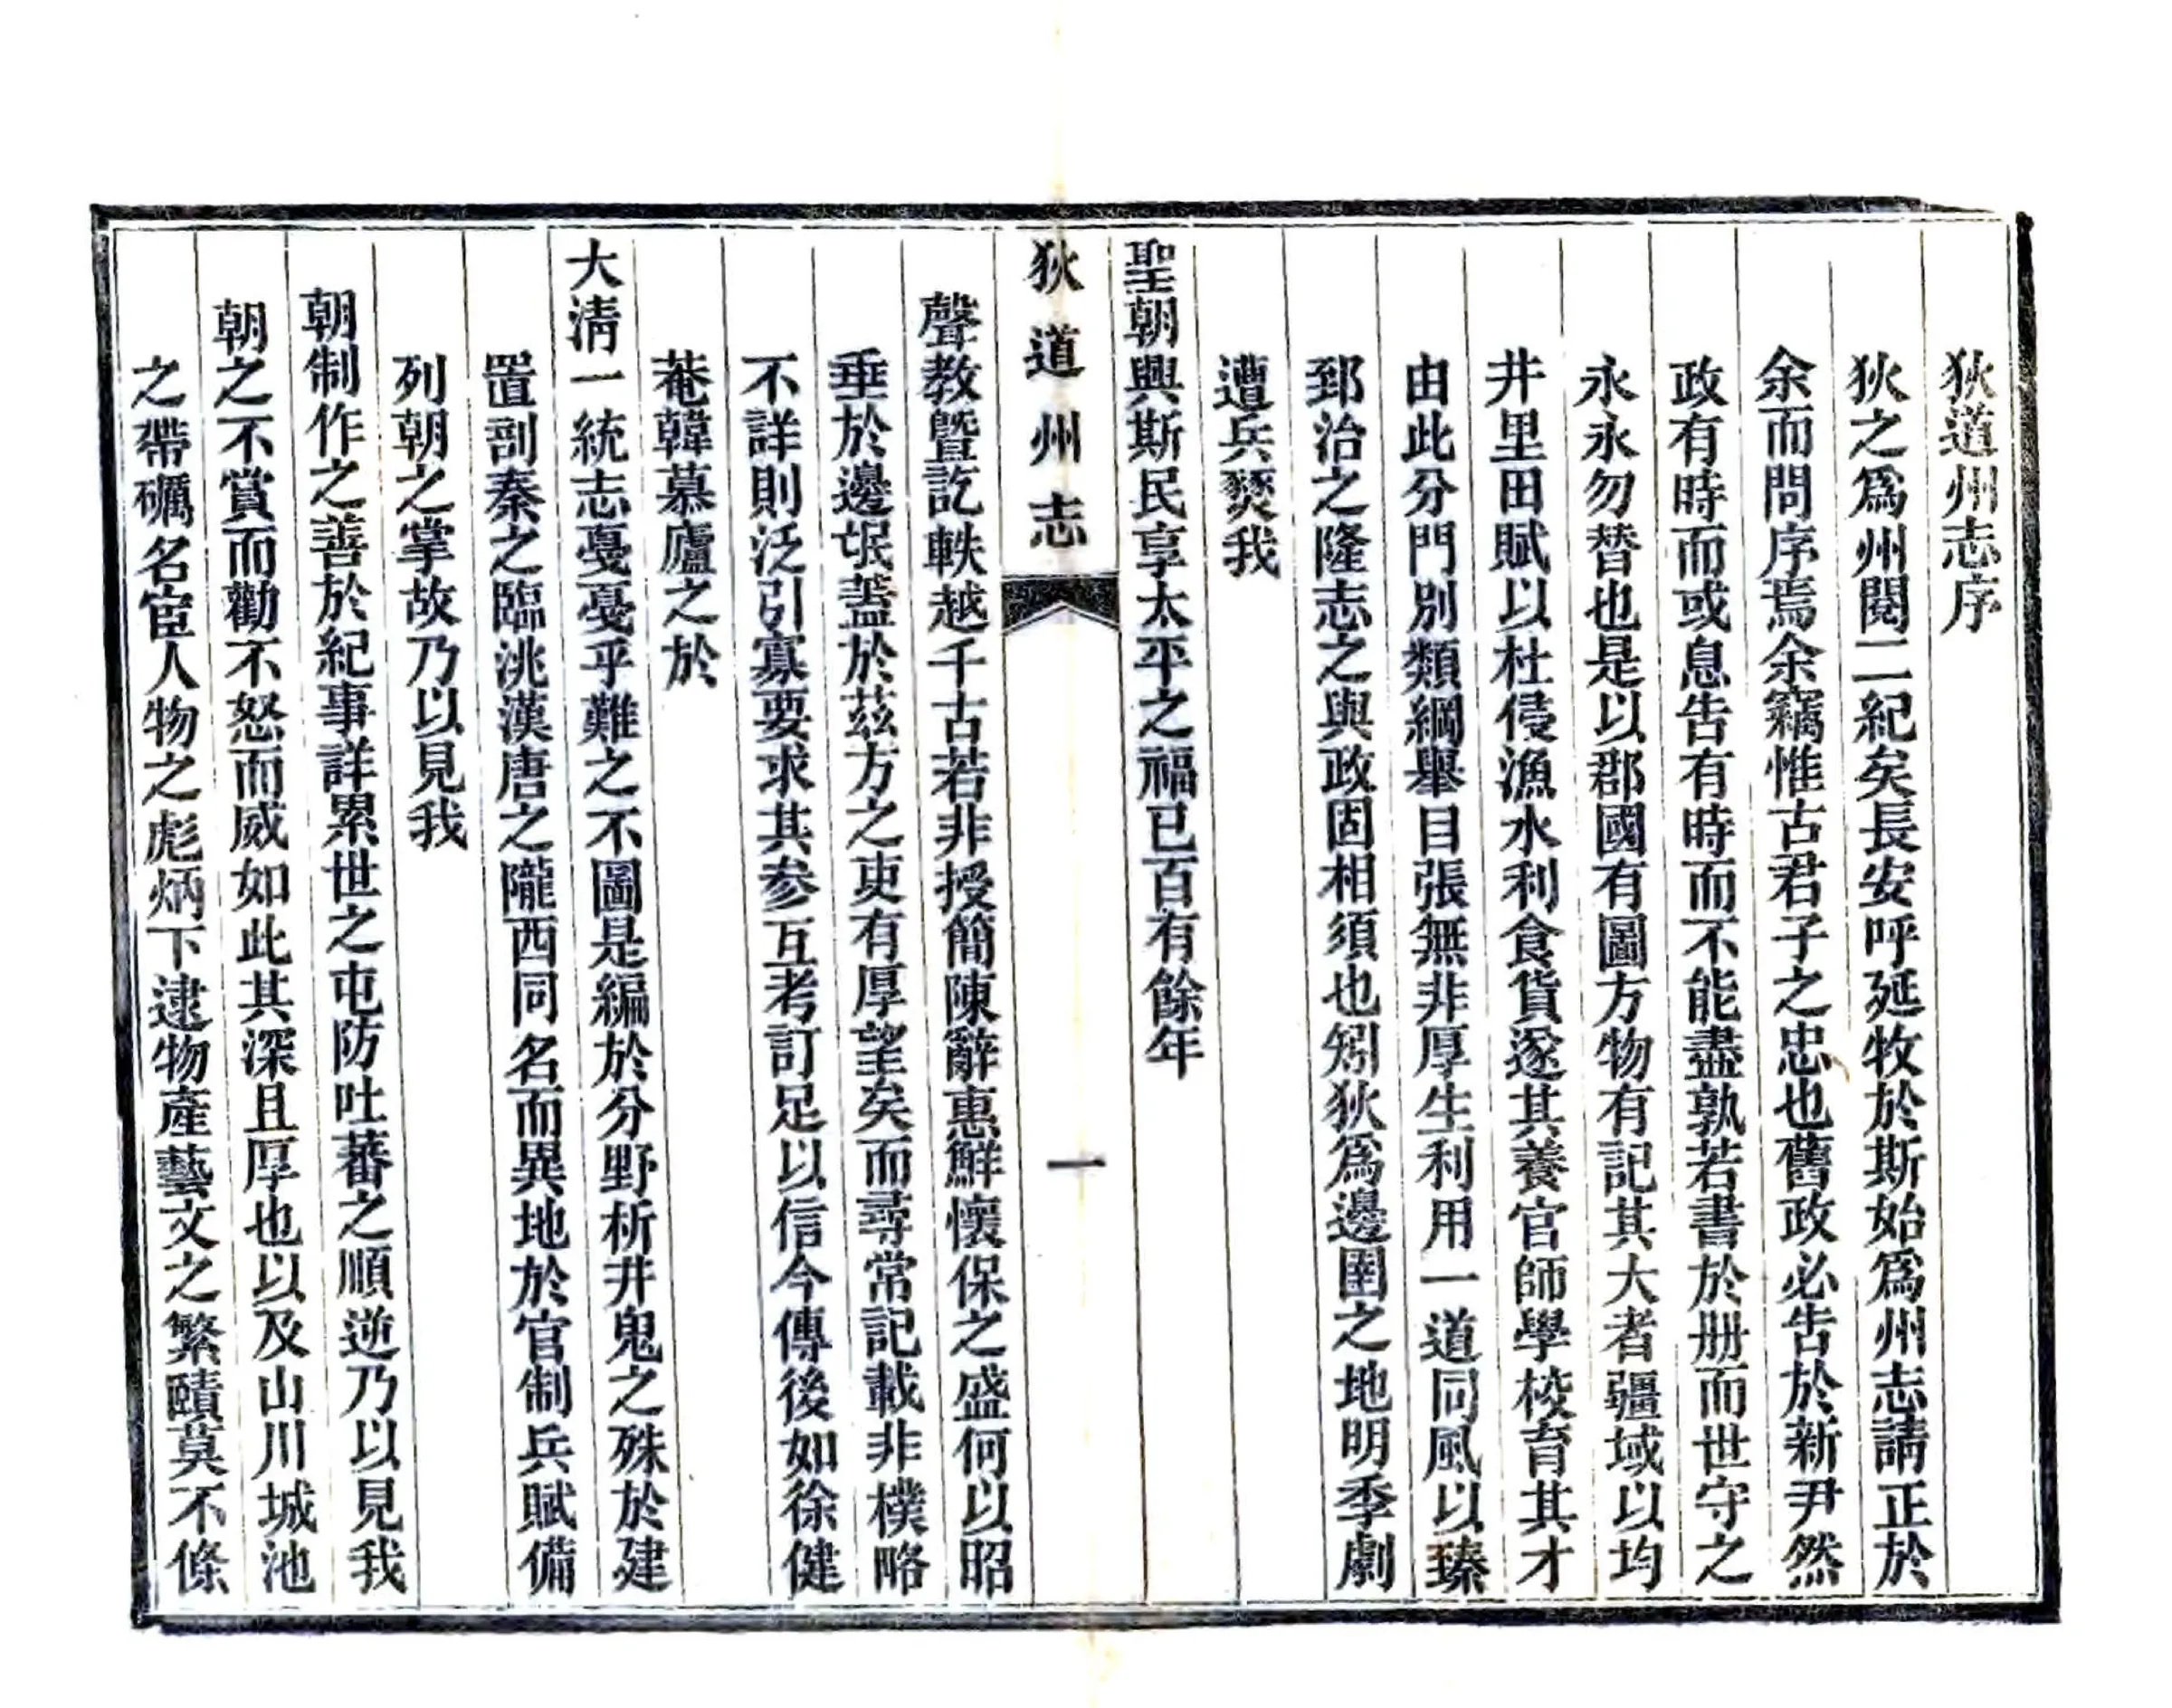 狄道州志序
狄之爲州閱二紀矣長安呼延牧於斯始爲州志請正於
余而問序焉余竊惟古君子之忠也舊政必告於新尹然
政有時而或息告有時而不能盡孰若書於册而世守之
永永勿替也是以郡國有圖方物有記其大者疆域以均
井里田賦以杜侵漁水利食貨遂其養官師學校育其才
由此分門別類綱舉目張無非厚生利用一道同風以臻
郅治之隆志之與政固相須也矧狄爲邊圉之地明季劇
遭兵燹我
聖朝興斯民享太平之福已百有餘年
狄道州志 一
聲教曁訖軼越千古若非授簡陳辭惠鮮懷保之盛何以昭
垂於邊氓蓋於茲方之吏有厚望矣而尋常記載非樸略
不詳則泛引寡要求其参互考訂足以信今傳後如徐健
菴韓慕廬之於
大淸一統志戞戞乎難之不圖是編於分野析井鬼之殊於建
置剖秦之臨洮漢唐之隴西同名而異地於官制兵賦備
列朝之掌故乃以見我
朝制作之善於紀事詳累世之屯防吐蕃之順逆乃以見我
朝之不賞而勸不怒而威如此其深且厚也以及山川城池
之帶礪名宦人物之彪炳下逮物產藝文之繁賾莫不條